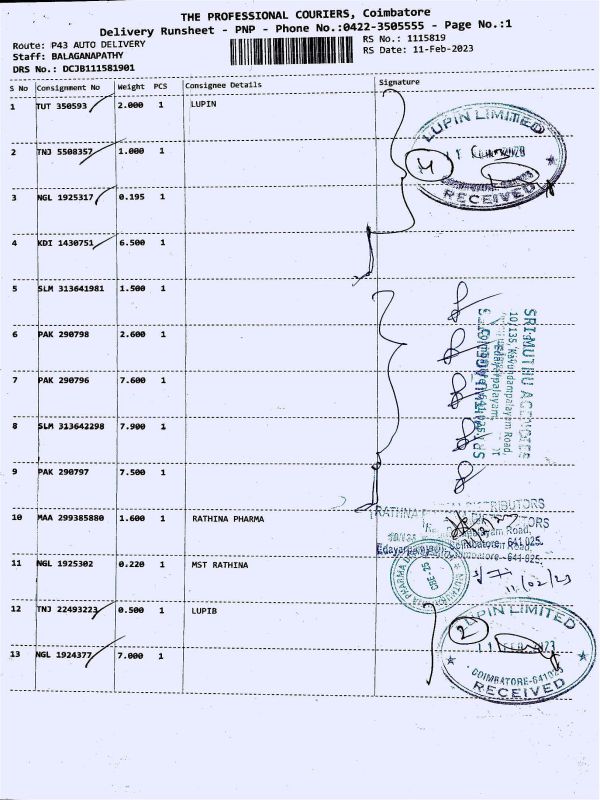 THE PROFESSIONAL COURIERS, Coimbatore
Delivery Runsheet - PNP - Phone No.:0422-3505555 - Page No.:1
Route: P43 AUTO DELIVERY
RS No.: 1115819
Staff: BALAGANAPATHY
RS Date: 11-Feb-2023
DRS No.: DCJB111581901
S No Consignment No Weight PCS Consignee Details Signature
1 TUT 350593 2.000 1 LUPIN
2 TNJ 5508357 1.000 1
3 NGL 1925317 0.195 1
4 KDI 1430751 6.500 1
5 SLM 313641981 1.500 1
6 PAK 290798 2.600 1
7 PAK 290796 7.600 1
8 SLM 313642298 7.900 1
9 PAK 290797 7.500 1
10 MAA 299385880 1.600 1 RATHINA PHARMA
11 NGL 1925302 0.220 1 MST RATHINA
12 TNJ 22493223 0.500 1 LUPIB
13 NGL 1924377 7.000 1
LUPIN LIMITED
4
RECEIVED
SRI MUTHU AGENCIES
10/135, Kavundampalayam Road,
RATHINA
DISTRIBUTORS
Road,
Coimbatore - 641 025.
CBE - 25
11/02/23
LUPIN LIMITED
2
11 FEB 2023
COIMBATORE-641025
RECEIVED